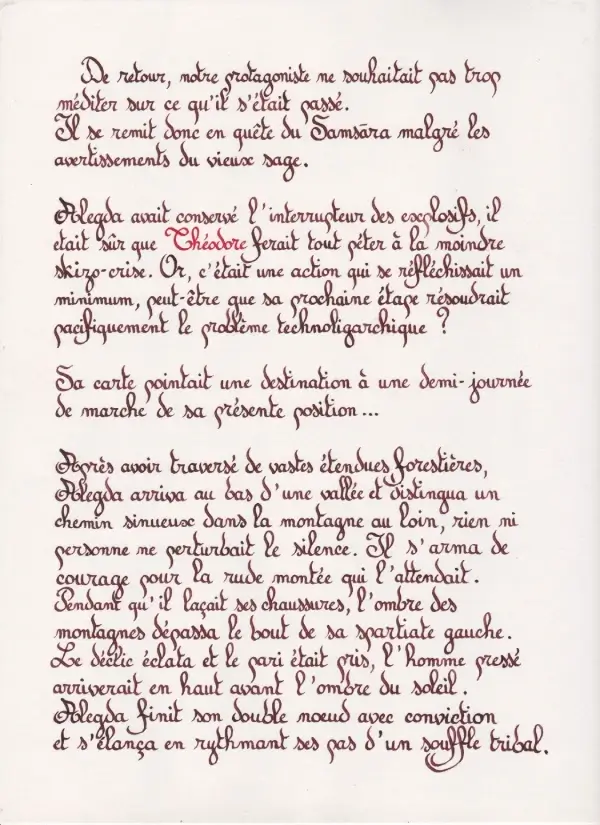 De retour, notre protagoniste ne souhaitait pas trop
méditer sur ce qu'il s'était passé.
Il se remit donc en quête du Samsāra malgré les
avertissements du vieux sage.
Alegda avait conservé l'interrupteur des explosifs, il
etait sûr que Théodore ferait tout péter à la moindre
skizo-crise. Or, c'était une action qui se réfléchissait un
minimum, peut-être que sa prochaine étape résoudrait
pacifiquement le problème technoligarchique ?
Sa carte pointait une destination à une demi-journée
de marche de sa présente position...
Après avoir traversé de vastes étendues forestières,
Alegda arriva au bas d'une vallée et distingua un
chemin sinueux dans la montagne au loin, rien ni
personne ne perturbait le silence. Il s'arma de
courage pour la rude montée qui l'attendait.
Pendant qu'il laçait ses chaussures, l'ombre des
montagnes dépassa le bout de sa spartiate gauche.
Le déclic éclata et le pari était pris, l'homme pressé
arriverait en haut avant l'ombre du soleil.
Alegda finit son double noeud avec conviction
et s'élança en rythmant ses pas d'un souffle tribal.